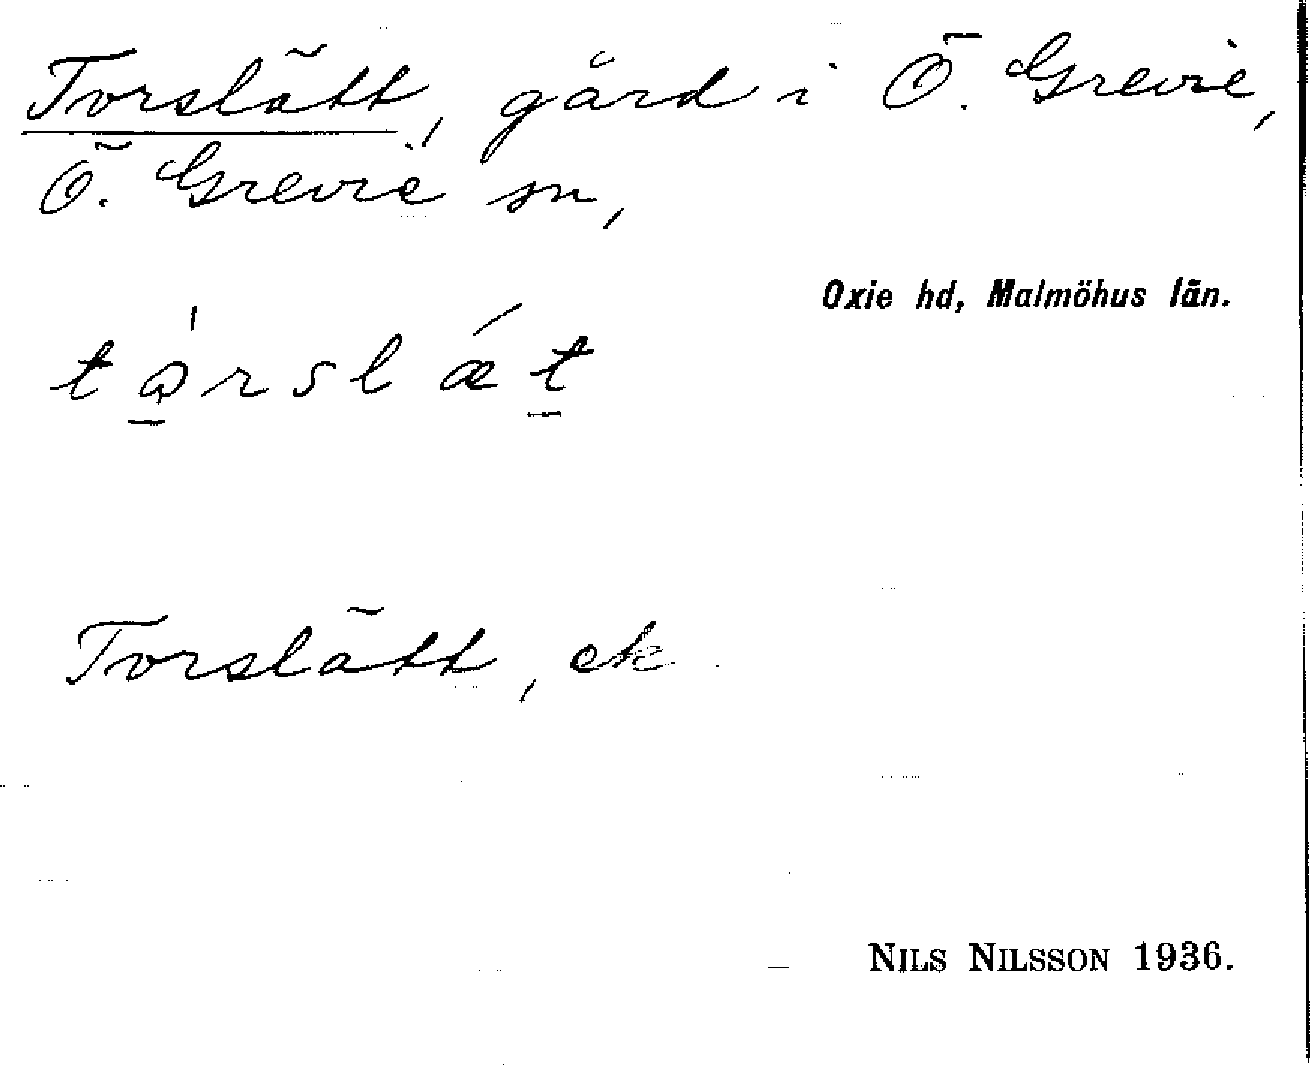 Torslätt, gård i Ö. Grevie,
Ö. Grevie sn,
Oxie hd, Malmöhus län.
Torslätt, ek
NILS NILSSON 1936.